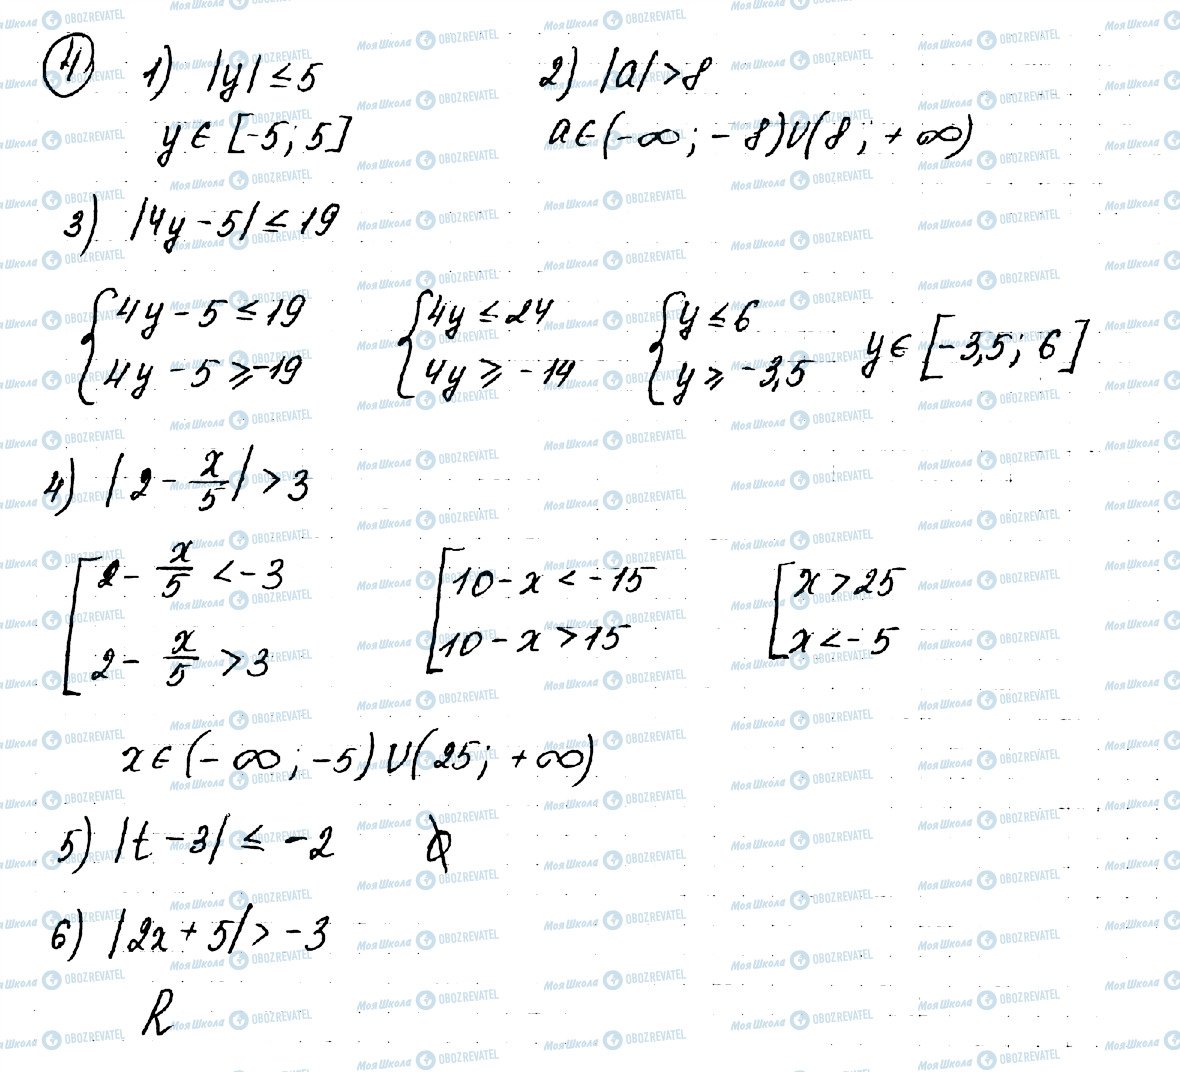 4
1) |y| ≤ 5
y ∈ [-5; 5]
2) |a| > 8
a ∈ (-∞; -8) ∪ (8; +∞)
3) |4y - 5| ≤ 19
{ 4y - 5 ≤ 19
4y - 5 ≥ -19
{ 4y ≤ 24
4y ≥ -14
{ y ≤ 6
y ≥ -3,5
y ∈ [-3,5; 6]
4) |2 - x/5| > 3
[ 2 - x/5 < -3
2 - x/5 > 3
[ 10 - x < -15
10 - x > 15
[ x > 25
x < -5
x ∈ (-∞; -5) ∪ (25; +∞)
5) |t - 3| ≤ -2 ∅
6) |2x + 5| > -3
R
Моя Школа OBOZREVATEL